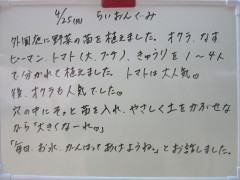 4/25(月) らいおんぐみ
外国庭に野菜の苗を植えました。オクラ、なす
ピーマン、トマト(大、プチ)、きゅうりを1~4人
で分かれて植えました。トマトは大人気。
後、オクラも人気でした。
穴の中にそっと苗を入れ、やさしく土をかぶせな
がら「大きくなーれ。」
「毎日、お水、がんばってあげようね。」とお話しました。